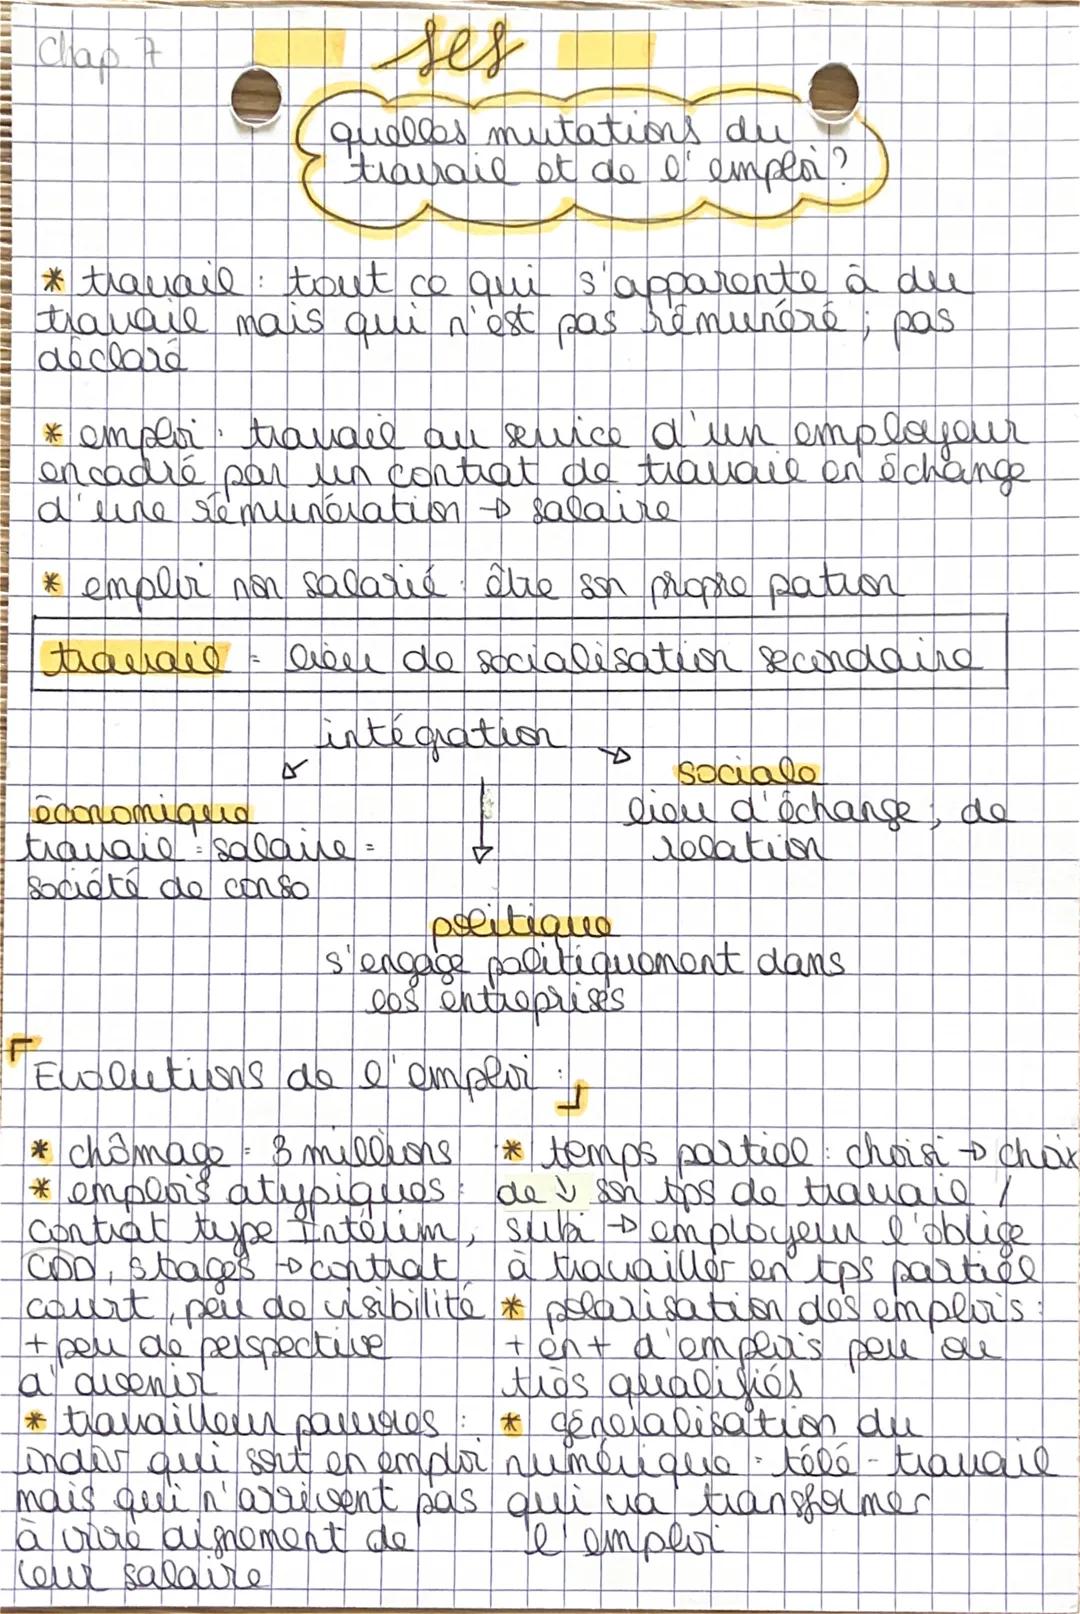 Chap 7
ses
quelles mutations du
travail et de l'emploi ?
* travail : tout ce qui s'apparente à du
travail mais qui n'est pas rémunéré ; pas
déclaré
* emploi : travail au service d'un employeur
encadré par un contrat de travail en échange
d'une rémunération → salaire
* emploi non salarié : être son propre patron
travail = lieu de socialisation secondaire
intégration
économique
travail = salaire =
société de conso
sociale
lieu d'échange ; de
relation
politique
s'engage politiquement dans
les entreprises
Evolutions de l'emploi :
* chômage = 3 millions
* emplois atypiques :
contrat type Intérim,
CDD, stages → contrat
court, peu de visibilité
+ peu de perspective
d'avenir
* travailleur pauvres :
indiv qui sont en emploi
mais qui n'arrivent pas
à vivre dignement de
leur salaire
* temps partiel : choisi → choix
de ↓ son tps de travail /
subi → employeur l'oblige
à travailler en tps partiel
* polarisation des emplois :
+ en + d'emplois peu ou
très qualifiés
* généralisation du
numérique = télé-travail
qui va transformer
l'emploi